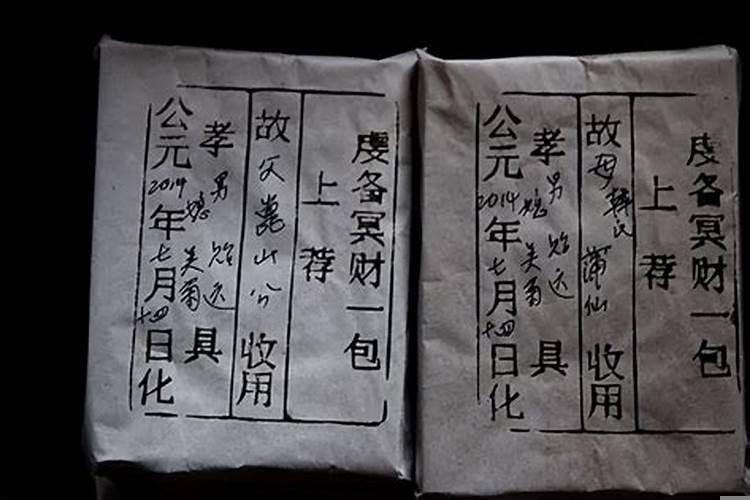 虔备冥财一包
上荐
故父嵩山公收用
孝男 贻远
媳 美菊 具
公元2014年七月十四日化
虔备冥财一包
上荐
故母韩氏蒲仙收用
孝男 贻远
媳 美菊 具
公元2014年七月十四日化